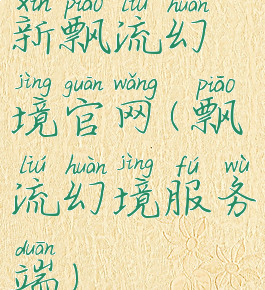 xīn piāo liú huàn
新飘流幻
jìng guān wǎng piāo
境官网(飘
liú huàn jìng fú wù
流幻境服务
duān
端)